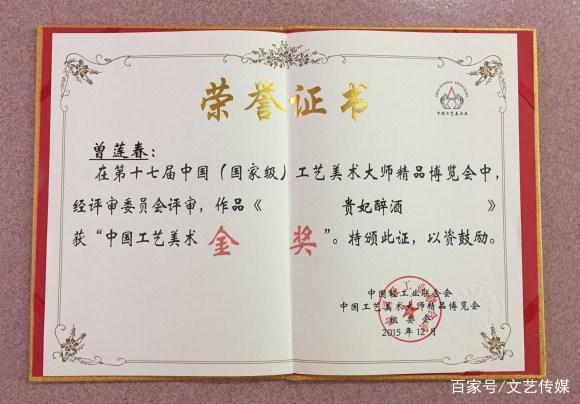 荣誉证书
中国工艺美术展
曾莲春：
在第十七届中国（国家级）工艺美术大师精品博览会中，
经评审委员会评审，作品《 贵妃醉酒 》
获“中国工艺美术 金 奖 ”。特颁此证，以资鼓励。
中国轻工业联合会
中国工艺美术大师精品博览会
组委会
2015年12月
百家号/文艺传媒